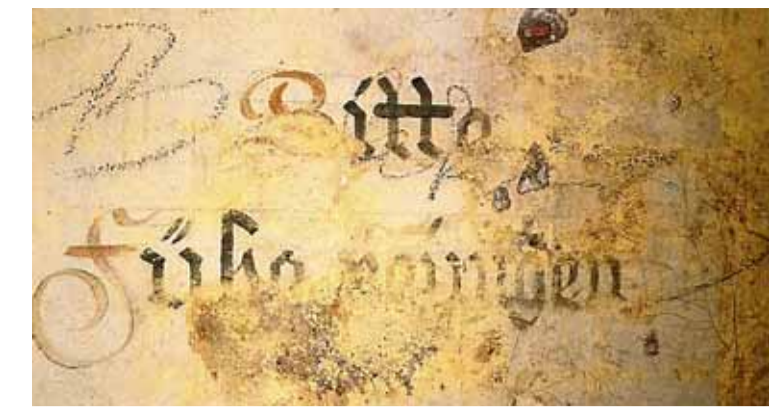 Bitte
Füße reinigen